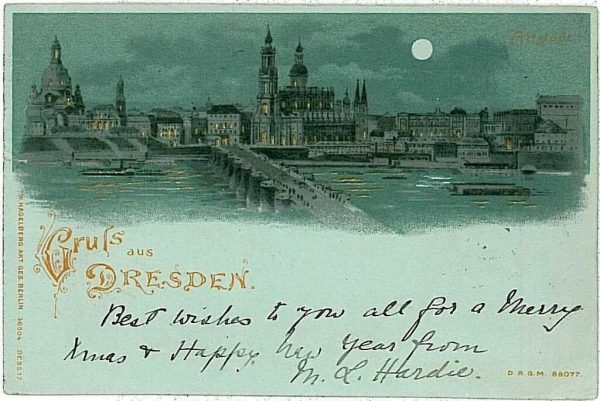 Altstadt
Gruſs aus
DRESDEN.
Best wishes to you all for a Merry
Xmas & Happy new Year from
M. L. Hardie.
W. HAGELBERG AKT. GES. BERLIN 36904 DESS.17
D.R.G.M. 88077.